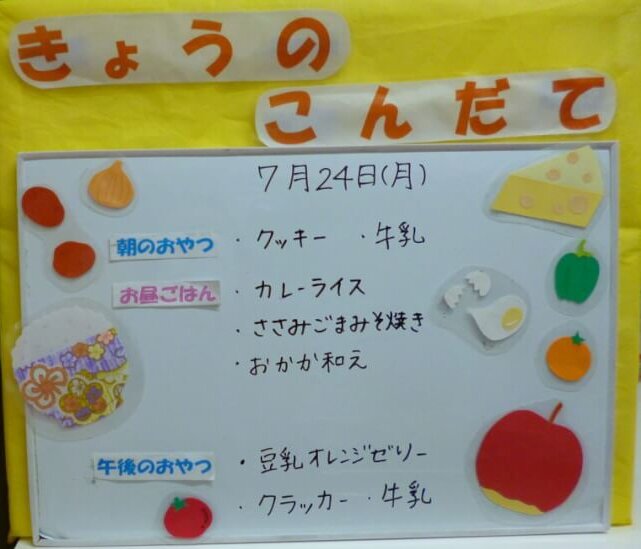 きょうの
こんだて
7月24日(月)
朝のおやつ ・クッキー ・牛乳
お昼ごはん ・カレーライス
・ささみごまみそ焼き
・おかか和え
午後のおやつ ・豆乳オレンジゼリー
・クラッカー ・牛乳